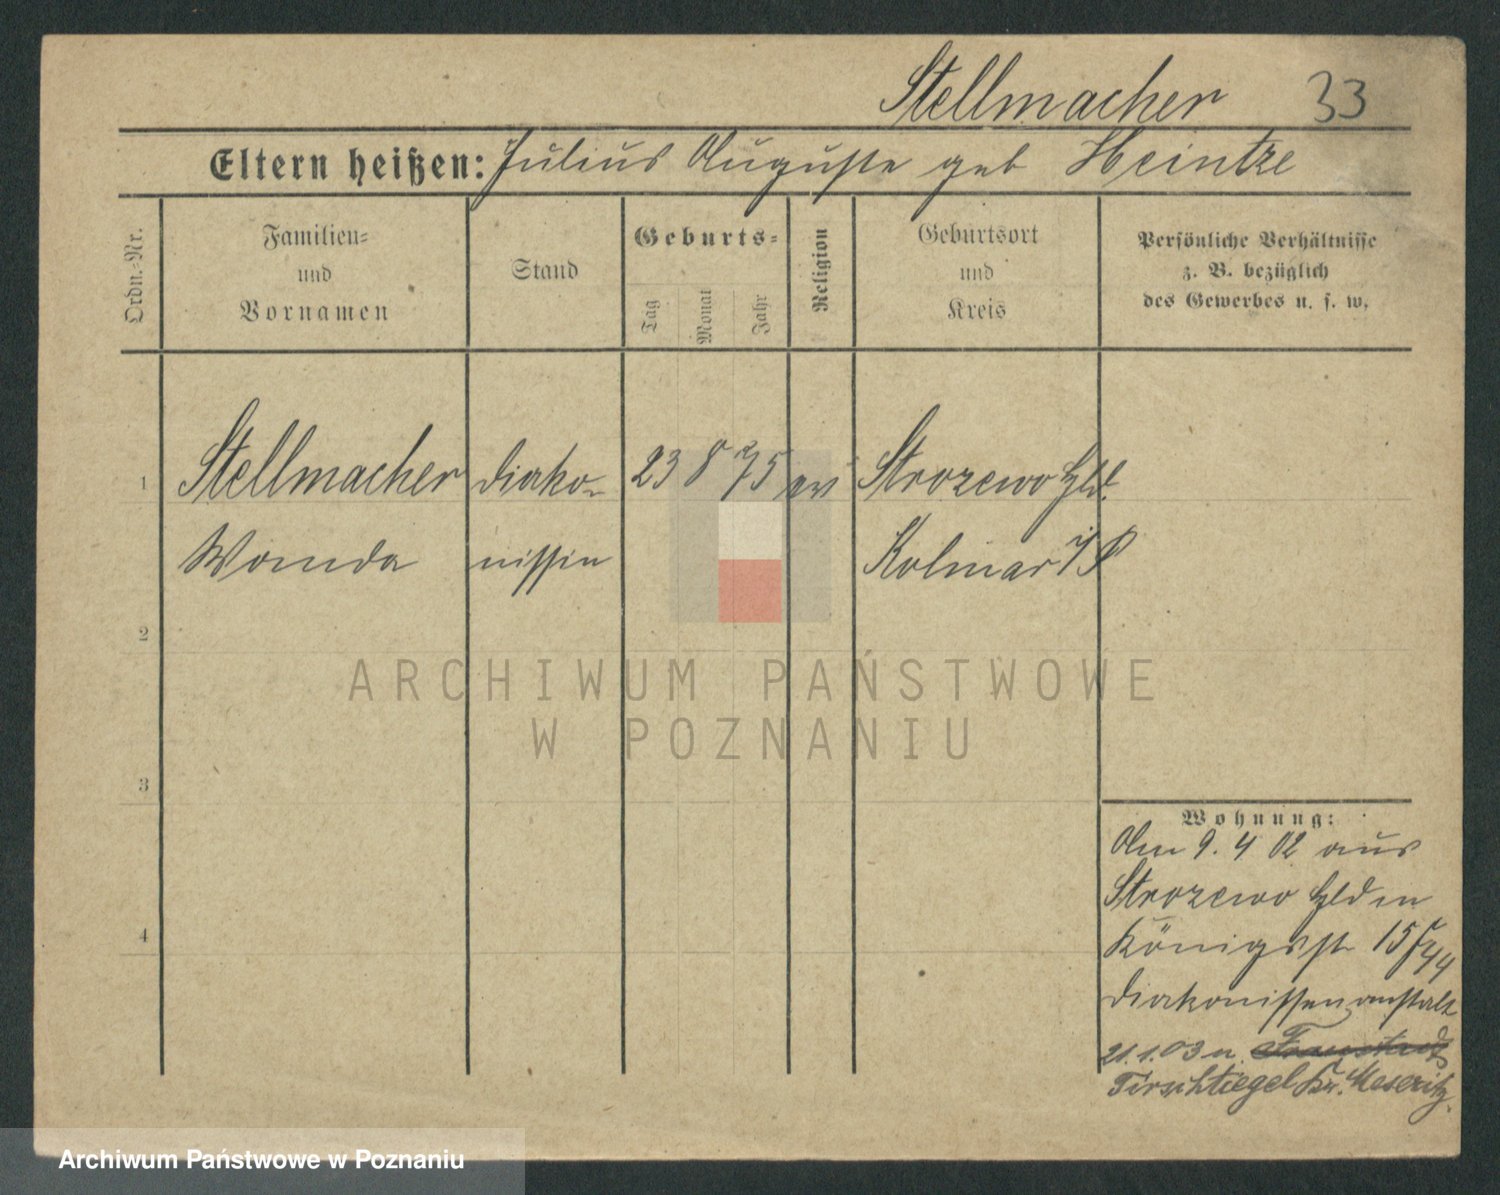 Stellmacher 33
Eltern heißen: Julius Auguste geb Heintze
Ordn.=Nr.
Familien=
und
Vornamen
Stand
Geburts=
Tag
Monat
Jahr
Religion
Geburtsort
und
Kreis
Persönliche Verhältnisse
z. B. bezüglich
des Gewerbes u. s. w.
1 Stellmacher diako- 23 8 75 ev Strozewo Hld.
Wanda nissin Kolmar i/P
2
3
4
Wohnung:
Am 9. 4 02 aus
Strozewo Hld in
Königsstr 15
Diakonissenanstalt
21.1.03 n. Fraustadt
Tirschtiegel Kr. Meseritz.
ARCHIWUM PAŃSTWOWE
W POZNANIU
Archiwum Państwowe w Poznaniu